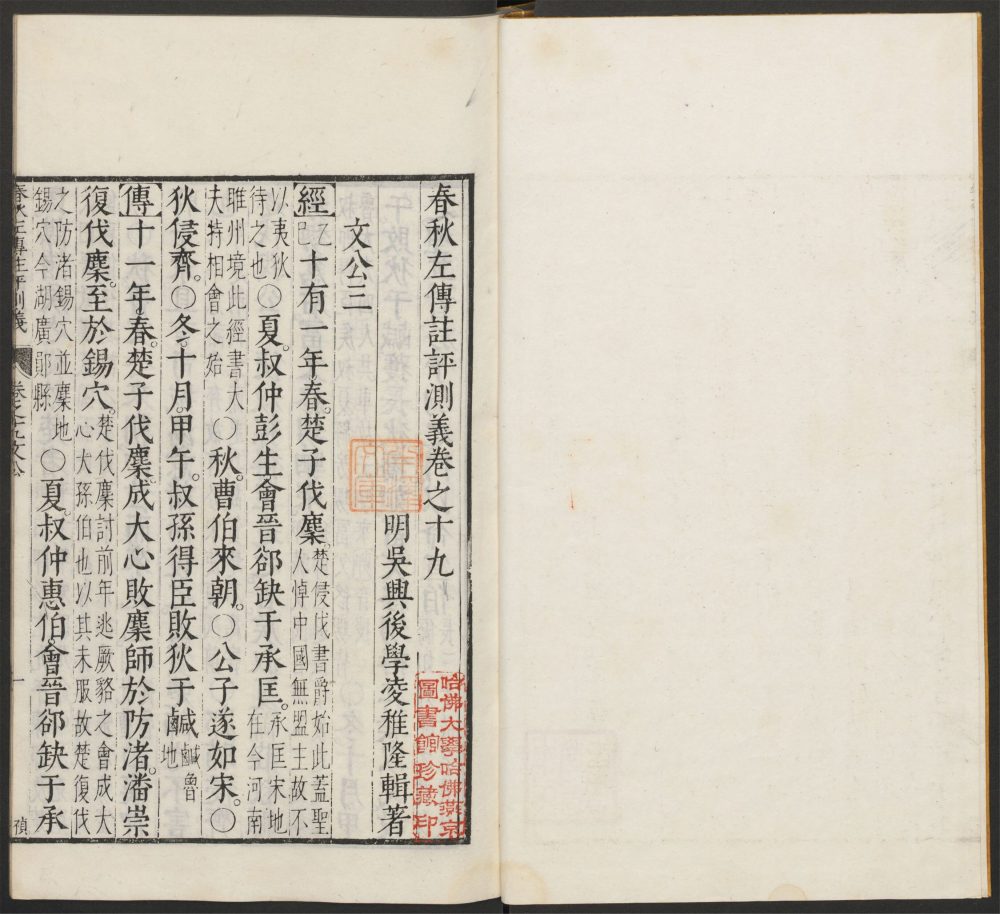 春秋左傳註評測義卷之十九
明吳興後學凌稚隆輯著
文公三
經乙巳十有一年。春。楚子伐麇。楚侵伐書爵始此蓋聖人悼中國無盟主故不
以夷狄待之也〇夏。叔仲彭生會晉郤缺于承匡。承匡宋地在今河南
睢州境此經書大夫特相會之始〇秋。曹伯來朝。〇公子遂如宋。〇
狄侵齊。〇冬。十月。甲午。叔孫得臣敗狄于鹹鹹魯地
傳十一年。春。楚子伐麇。成大心敗麇師於防渚。潘崇
復伐麇。至於錫穴。楚伐麇討前年逃厥貉之會成大心大孫伯也以其未服故楚復伐
之防渚錫穴並麇地錫穴今湖廣鄖縣〇夏。叔仲惠伯。會晉郤缺于承
春秋左傳註評測義
卷之十九文公
一
禎
哈佛大學哈佛燕京
圖書館珍藏印